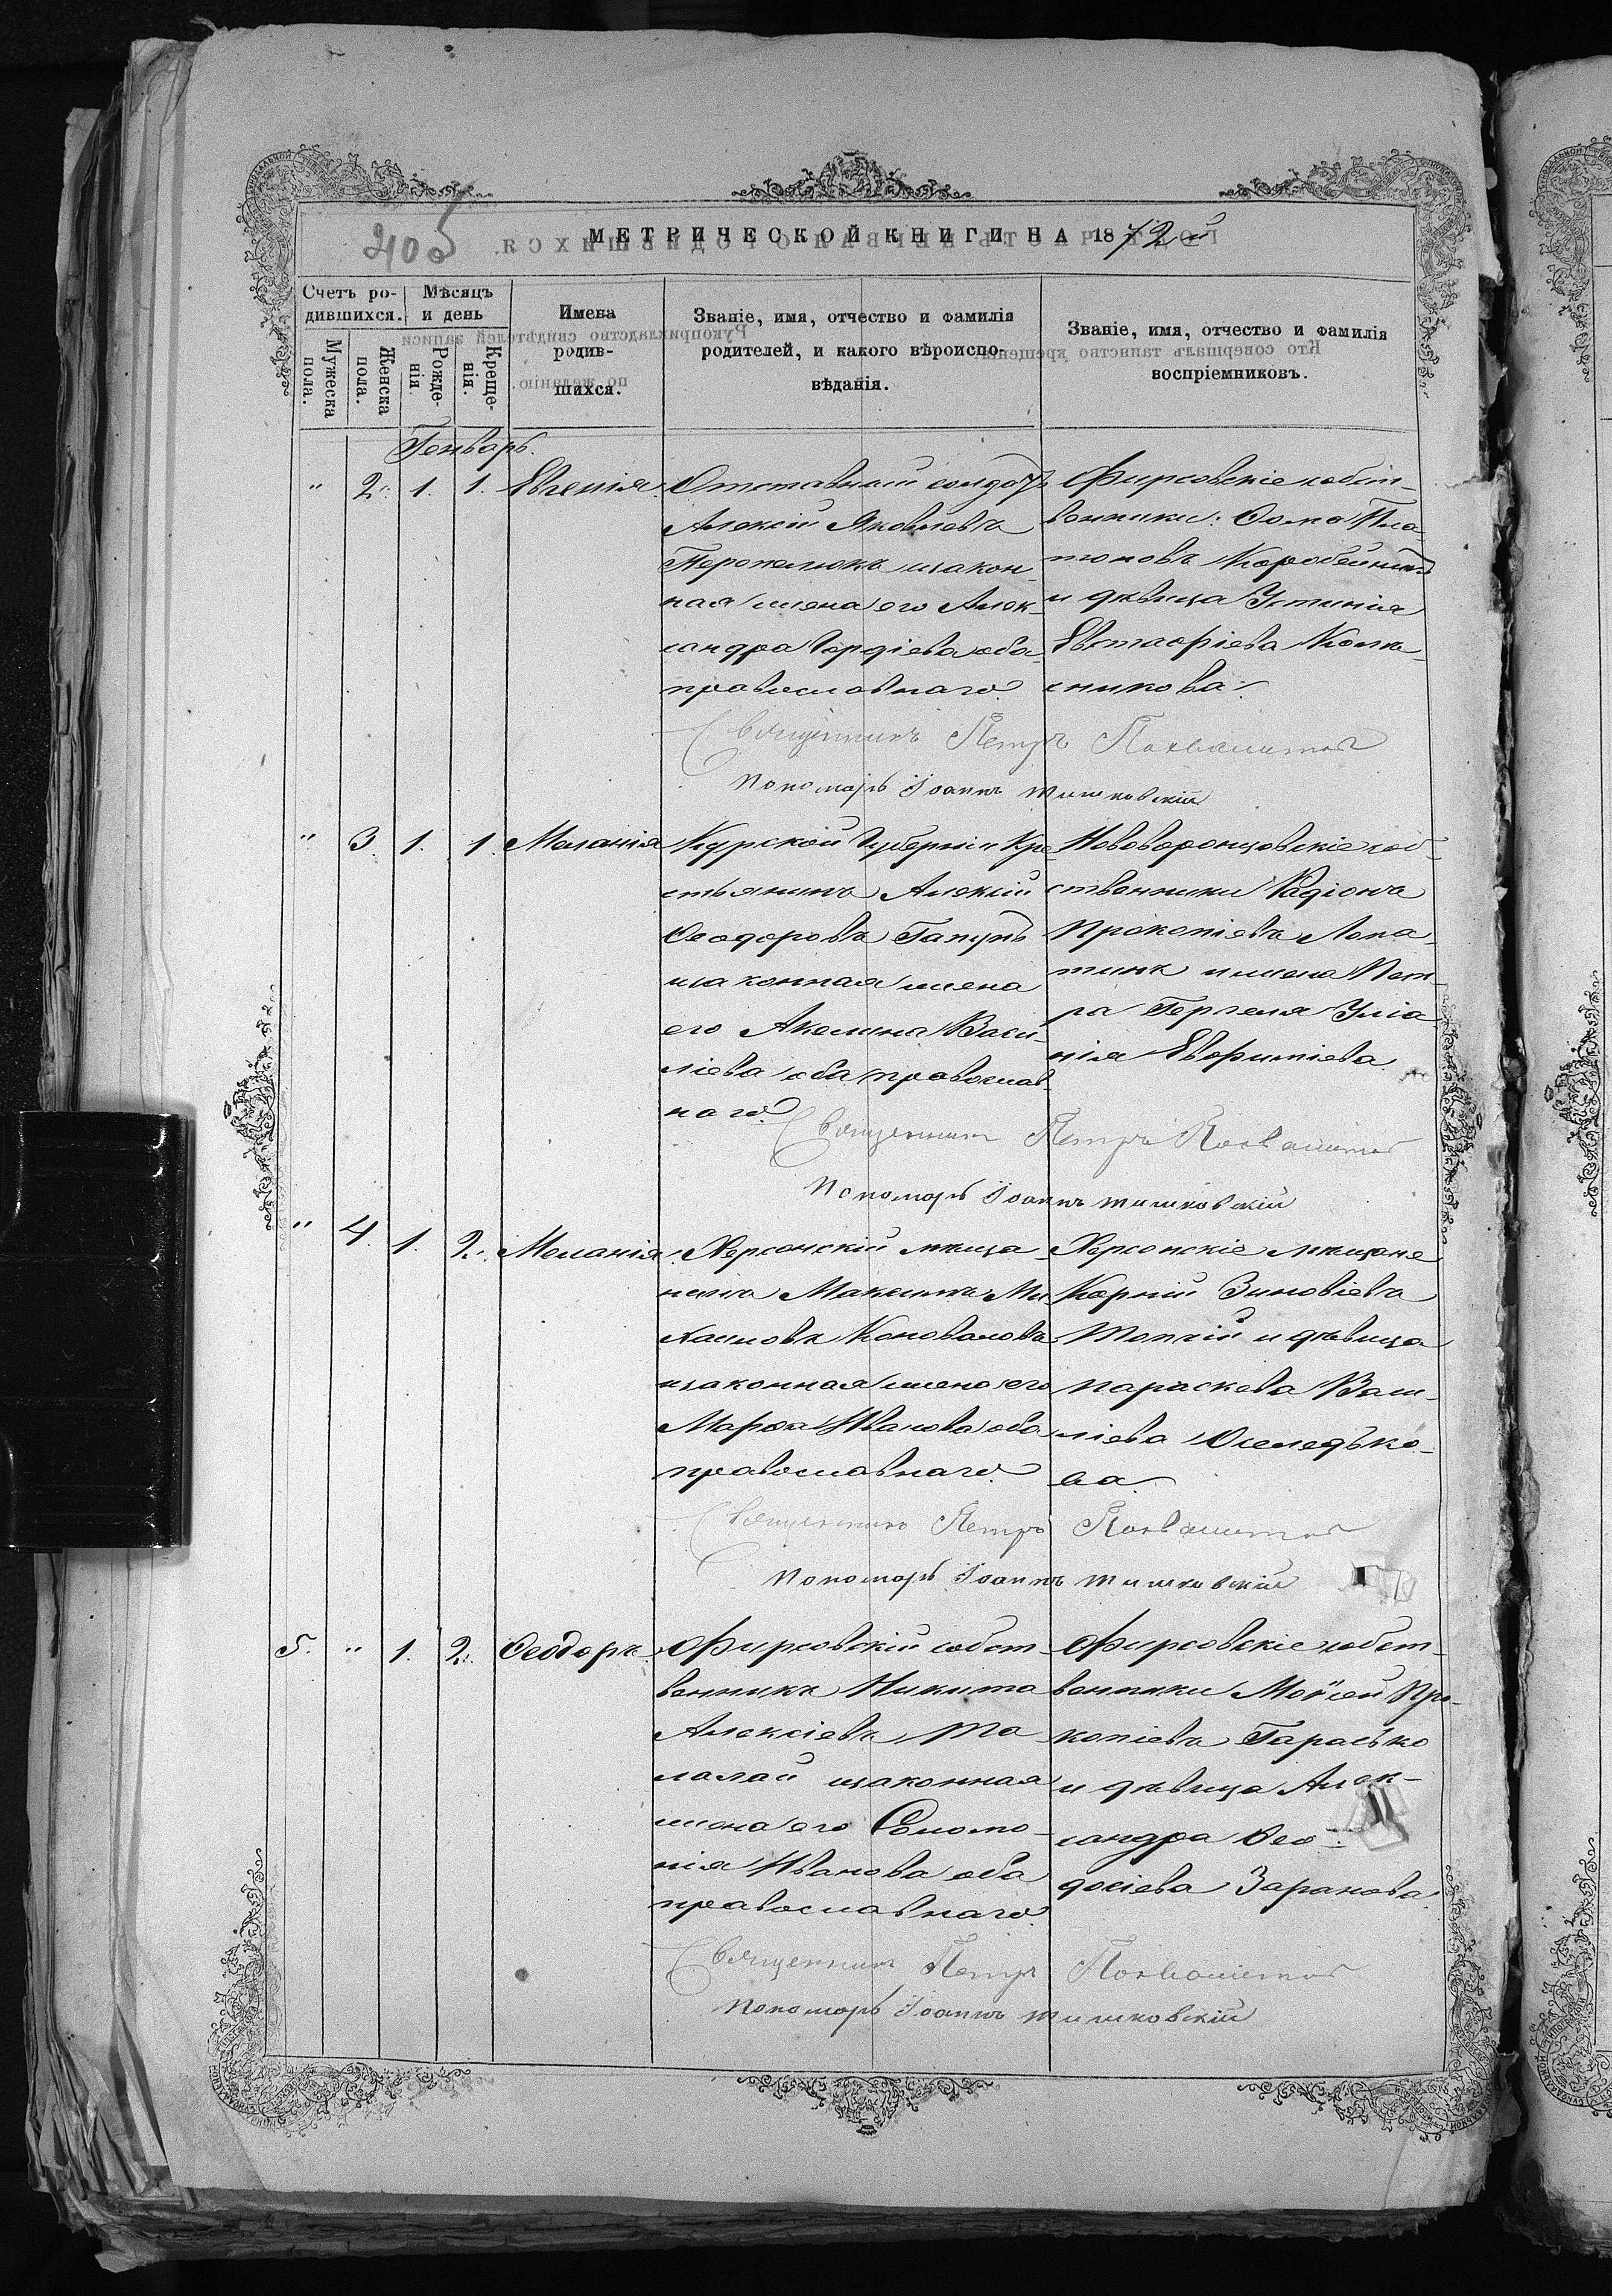 405
МЕТРИЧЕСКОЙ КНИГИ НА 1872 й
Счетъ ро-
дившихся.
Мѣсяцъ
и день
Мужеска
пола.
Женска
пола.
Рожде-
нія.
Креще-
нія.
Имена
родив-
шихся.
Званіе, имя, отчество и фамилія
родителей, и какого вѣроиспо-
вѣданія.
Званіе, имя, отчество и фамилія
воспріемниковъ.
Генварь.
" 2. 1. 1. Евгенія.
Отставный солдатъ
Алексій Яковлевъ
изакон-
ная жена его Алек-
сандра Гордіева оба
православнаго.
Фирсовскіе собст-
венники: Ѳома Пла-
тоновъ Коробейникъ
и дѣвица Устинія
Евстафіева Колѣ-
сникова.
Священникъ Петръ
Пономарь Іоаннъ Тишковскій
" 3. 1. 1. Меланія
Курской Губерніи Кре-
стьянинъ Алексій
Ѳеодоровъ
изаконная жена
его Акелина Васи-
ліева оба православ-
наго.
Нововоронцовскіе соб-
ственники Радіонъ
Прокопіевъ Лопа-
тинъ и жена Пет-
ра Гергеля Уліа-
нія Евфиміева
Священникъ Петръ
Пономарь Іоаннъ Тишковскій
" 4. 1. 2. Меланія.
Херсонскій мѣща-
нинъ Максимъ Ми-
хаиловъ Коноваловъ
изаконная жена его
Марѳа Иванова оба
православнаго.
Херсонскіе мѣщане
Корній Зиновіевъ
Топчій и дѣвица
Параскева Васи-
ліева Оселедько-
ва.
Священникъ Петръ
Пономарь Іоаннъ Тишковскій
5. " 1. 2. Ѳеодоръ.
Фирсовскій собст-
венникъ Никита
Алексіевъ Та-
лалай изаконная
жена его Соломо-
нія Иванова оба
православнаго.
Фирсовскіе собст-
венники Моѵсей Про-
копіевъ Гарасько
и дѣвица Алек-
сандра Ѳео-
досіева Заранова.
Священникъ Петръ
Пономарь Іоаннъ Тишковскій